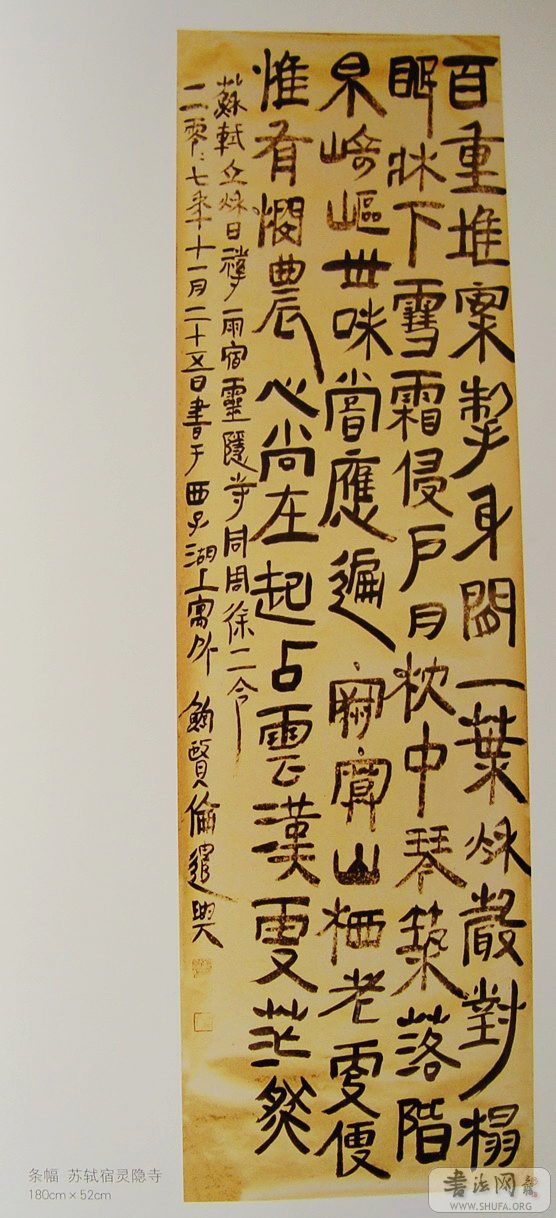 百重堆案掣身閒一葉秋聲對榻
眠牀下雪霜侵戶月枕中琴築落階
泉崎嶇世味嘗應遍寂寞山栖老更便
惟有憫農心尚在起占雲漢更茫然
蘇軾立秋日禱雨宿靈隱寺同周徐二令
二零零七年十一月二十五日書于西子湖上寓所 鮑賢倫遣興
条幅 苏轼宿灵隐寺
180cm×52cm
书法网
WWW.SHUFA.ORG